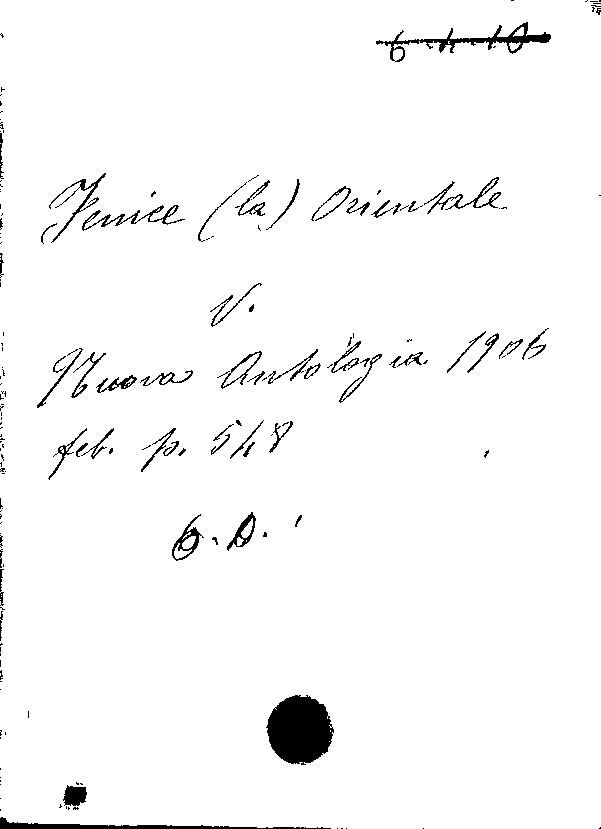 6 4 10
Fenice (la) Orientale
V.
Nuova Antologia 1906
feb. p. 548
6. D.